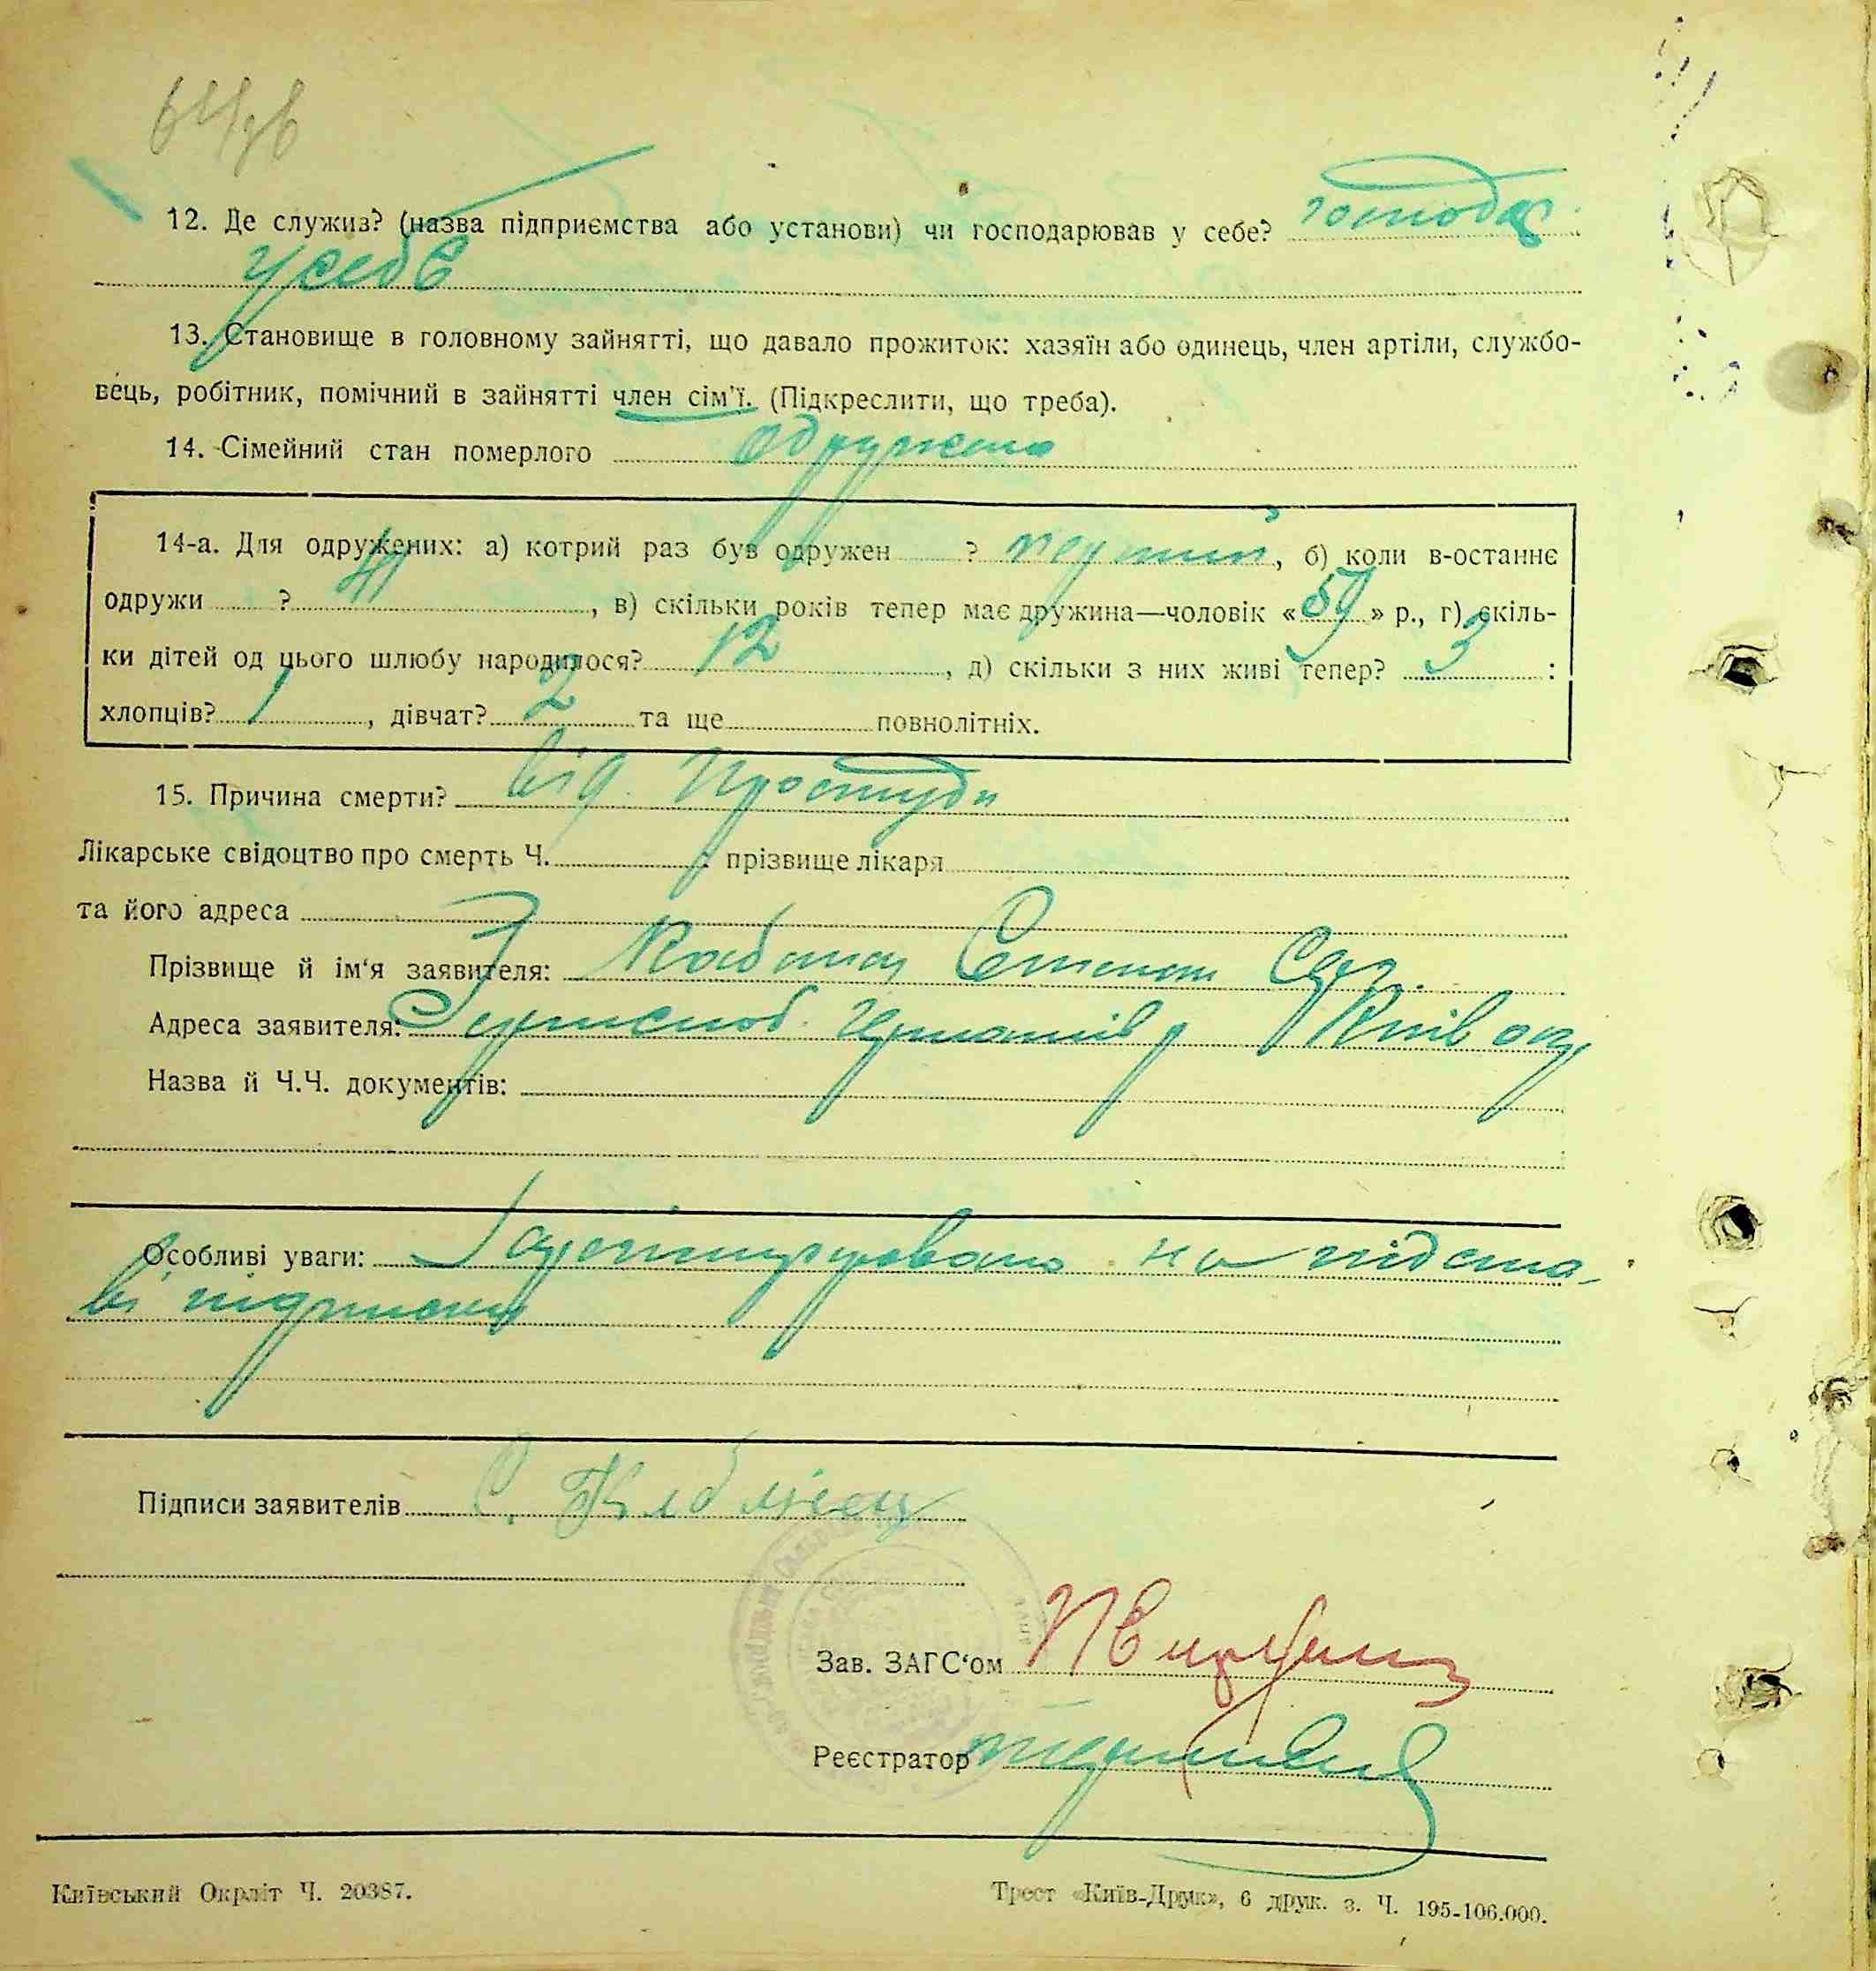 12. Де служив? (назва підприємства або установи) чи господарював у себе? господар
у себе
13. Становище в головному зайнятті, що давало прожиток: хазяїн або одинець, член артіли, службо-
вець, робітник, помічний в зайнятті член сім'ї. (Підкреслити, що треба).
14. Сімейний стан померлого одружена
14-а. Для одружених: а) котрий раз був одружен ? перший, б) коли в-останнє
одружи ? , в) скільки років тепер має дружина—чоловік «59» р., г) скіль-
ки дітей од цього шлюбу народилося? 12 , д) скільки з них живі тепер? 3 :
хлопців? 1 , дівчат? 2 та ще повнолітніх.
15. Причина смерти? від Простуди
Лікарське свідоцтво про смерть Ч. : прізвище лікаря
та його адреса
Прізвище й ім'я заявителя: Степан
Адреса заявителя: Київ окр
Назва й Ч.Ч. документів:
Особливі уваги: на підста-
ві підписки
Підписи заявителів С.
Зав. ЗАГС'ом
Реєстратор
Київський Окрліт Ч. 20387.
Трест «Київ-Друк», 6 друк. з. Ч. 195-106.000.